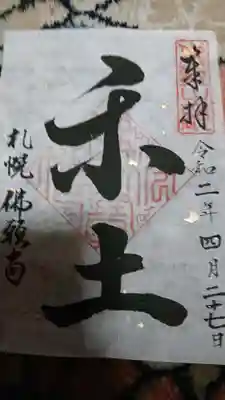 奉拝
令和二年四月二十七日
乐土
札幌佛願寺